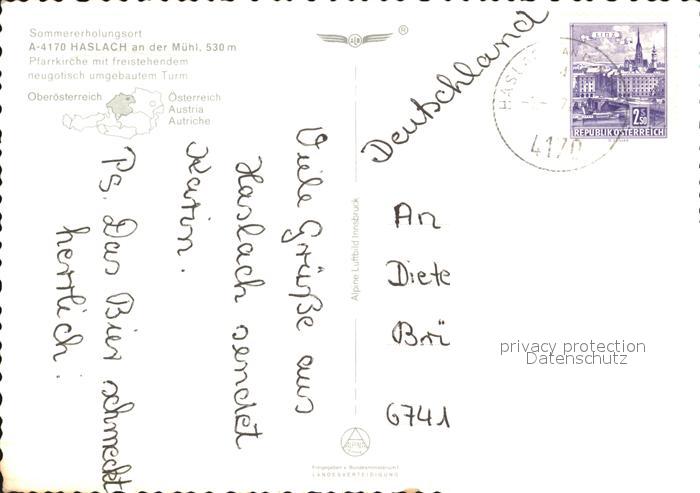 Sommererholungsort
A-4170 HASLACH an der Mühl, 530 m
Pfarrkirche mit freistehendem
neugotisch umgebautem Turm
Oberösterreich
Österreich
Austria
Autriche
®
Viele Grüße aus
Haslach sendet
Katrin.
Ps. Das Bier schmeckt
herrlich!
Alpine Luftbild Innsbruck
Deutschland
An
Diete
Brü
6741
LINZ
2.50
REPUBLIK ÖSTERREICH
HASLACH AN
4170
privacy protection
Datenschutz
ALPINE
Freigegeben v. Bundesministerium f.
LANDESVERTEIDIGUNG